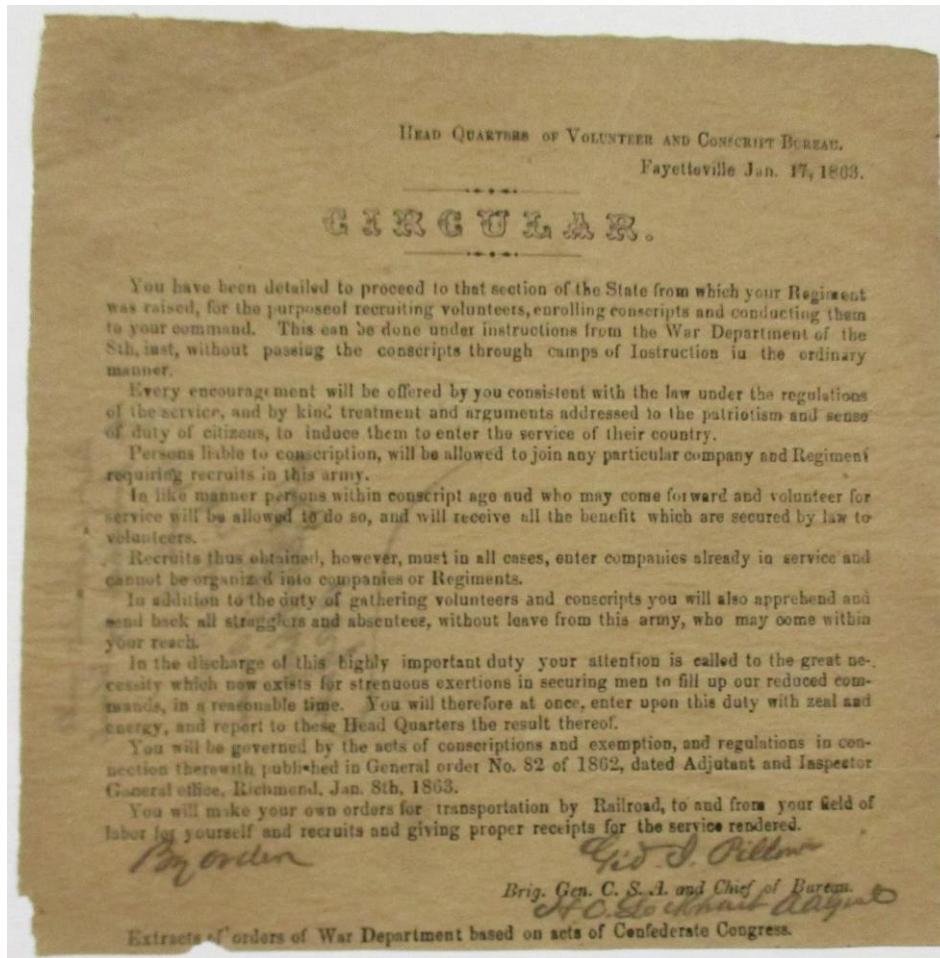 HEAD QUARTERS OF VOLUNTEER AND CONSCRIPT BUREAU.
Fayetteville Jan. 17, 1863.
CIRCULAR.
You have been detailed to proceed to that section of the State from which your Regiment
was raised, for the purposeof recruiting volunteers, enrolling conscripts and conducting them
to your command. This can be done under instructions from the War Department of the
8th, inst, without passing the conscripts through camps of Instruction in the ordinary
manner.
Every encouragement will be offered by you consistent with the law under the regulations
of the service, and by kind treatment and arguments addressed to the patriotism and sense
of duty of citizens, to induce them to enter the service of their country.
Persons liable to conscription, will be allowed to join any particular company and Regiment
requiring recruits in this army.
In like manner persons within conscript age aud who may come forward and volunteer for
service will be allowed to do so, and will receive all the benefit which are secured by law to
volunteers.
Recruits thus obtained, however, must in all cases, enter companies already in service and
cannot be organized into companies or Regiments.
In addition to the duty of gathering volunteers and conscripts you will also apprehend and
send back all stragglers and absentees, without leave from this army, who may come within
your reach.
In the discharge of this highly important duty your attention is called to the great ne-
cessity which now exists for strenuous exertions in securing men to fill up our reduced com-
mands, in a reasonable time. You will therefore at once, enter upon this duty with zeal and
energy, and report to these Head Quarters the result thereof.
You will be governed by the acts of conscriptions and exemption, and regulations in con-
nection therewith published in General order No. 82 of 1862, dated Adjutant and Inspector
General office, Richmond, Jan. 8th, 1863.
You will make your own orders for transportation by Railroad, to and from your field of
labor for yourself and recruits and giving proper receipts for the service rendered.
By order Gid J. Pillow
Brig. Gen. C. S. A. and Chief of Bureau.
H. C. Lockhart
Extracts of orders of War Department based on acts of Confederate Congress.